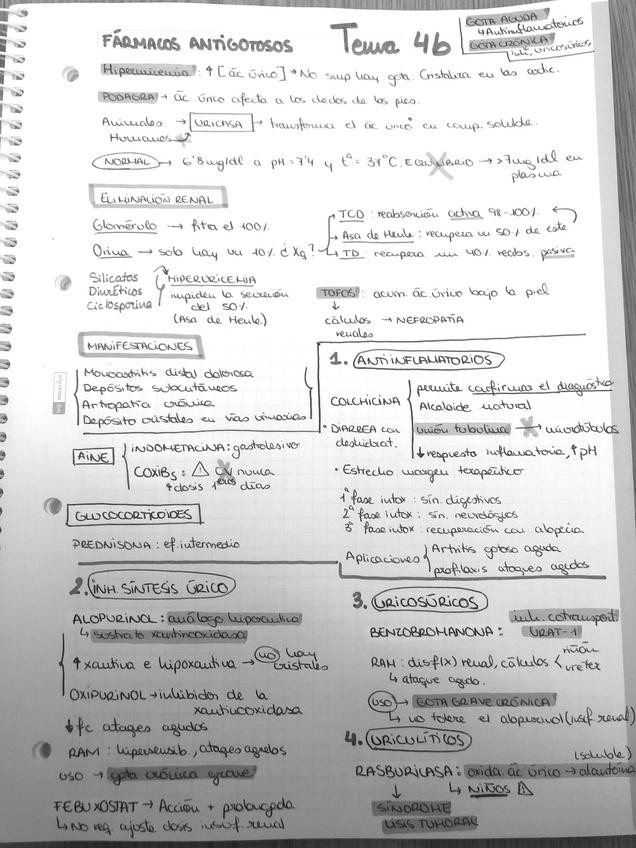 FÁRMACOS ANTIGOTOSOS Tema 4b
GOTA AGUDA
↳ Antiinflamatorios
GOTA CRÓNICA
↳ inh, uricosúricos
Hiperuricemia: ↑[ác úrico] → No siempre hay gota. Cristaliza en las artic.
PODAGRA → ác úrico afecta a los dedos de los pies.
Animales → URICASA → transforma el ác úrico en comp. soluble.
Humanos
NORMAL → 6'8 mg/dl a pH=7'4 y tª=37ºC. EQUILIBRIO → >7mg/dl en plasma
ELIMINACIÓN RENAL
Glomérulo → filtra el 100%
Orina → solo hay un 10% ¿Xq?
TCD: reabsorción activa 98-100%
Asa de Henle: recupera un 50% de este
TD: recupera un 40% reabs. pasiva
Silicatos
Diuréticos
Ciclosporina
HIPERURICEMIA
impiden la secreción
del 50%
(Asa de Henle)
TOFOS: acum. ác. úrico bajo la piel
↓
cálculos → NEFROPATÍA
renales
MANIFESTACIONES
Monoartritis distal dolorosa
Depósitos subcutáneos
Artropatía crónica
Depósito cristales en vías urinarias
AINE
INDOMETACINA: gastrolesivo
COXIBs: ⚠ CV nunca
↑dosis 1eros días
GLUCOCORTICOIDES
PREDNISONA: ef. intermedio
1. ANTIINFLAMATORIOS
COLCHICINA
permite confirmar el diagnóstico
Alcaloide natural
unión tubulina → microtúbulos
↓ respuesta inflamatoria, ↑pH
• DIARREA con
deshidrat.
• Estrecho margen terapéutico
1ª fase intox: sín. digestivos
2ª fase intox: sín. neurológicos
3ª fase intox: recuperación con alopecia
Aplicaciones
Artritis gotosa aguda
profilaxis ataques agudos
2. INH. SÍNTESIS ÚRICO
ALOPURINOL: análogo hipoxantina
↳ sustrato xantinooxidasa
↑ xantina e hipoxantina → no hay
cristales
OXIPURINOL → inhibidor de la
xantinooxidasa
↓ fc ataques agudos
RAM: hipersensib., ataques agudos
USO → gota crónica grave
FEBUXOSTAT → Acción + prolongada
↳ No req. ajuste dosis insuf. renal
3. URICOSÚRICOS
BENZOBROMANONA: inh. cotransport
URAT-1
RAM: disf(x) renal, cálculos < riñón
uréter
↳ ataque agudo.
USO → GOTA GRAVE CRÓNICA
↳ no tolere el alopurinol (insuf. renal)
4. URICULÍTICOS
(soluble)
RASBURICASA: oxida ác úrico → alantoína
↳ NIÑOS ⚠
↓
SÍNDROME
LISIS TUMORAL